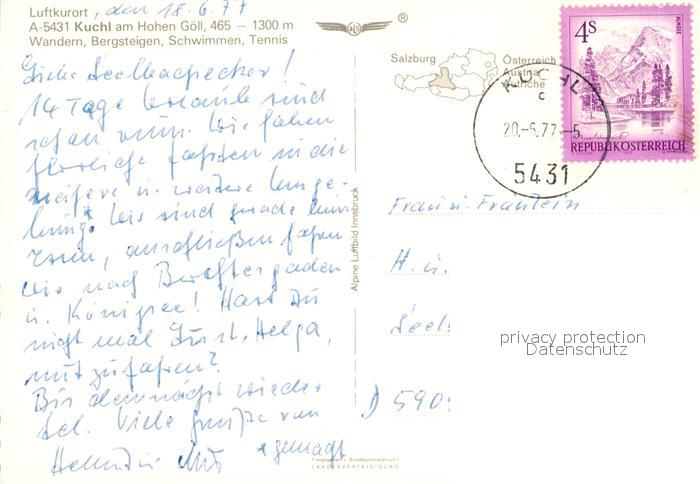 Luftkurort, den 18.6.77
A-5431 Kuchl am Hohen Göll, 465 – 1300 m
Wandern, Bergsteigen, Schwimmen, Tennis
®
Liebe
14 Tage Urlaub sind
schon um. Wir haben
herrliche Fahrten in die
nähere u. weitere Umge-
bung. Wir sind gerade beim
anschließend fahren
wir nach Berchtesgaden
u. Königsee! Hast Du
nicht mal Lust, Helga,
mitzufahren?
Bis demnächst wieder
Viele Grüße von
Alpine Luftbild Innsbruck
Salzburg
Österreich
Austria
Autriche
KUCHL
c
20.-6.77.-5
5431
4S
ALMSEE
REPUBLIK ÖSTERREICH
Frau u. Fräulein
H. u.
D 590
privacy protection
Datenschutz
LANDESVERTEIDIGUNG